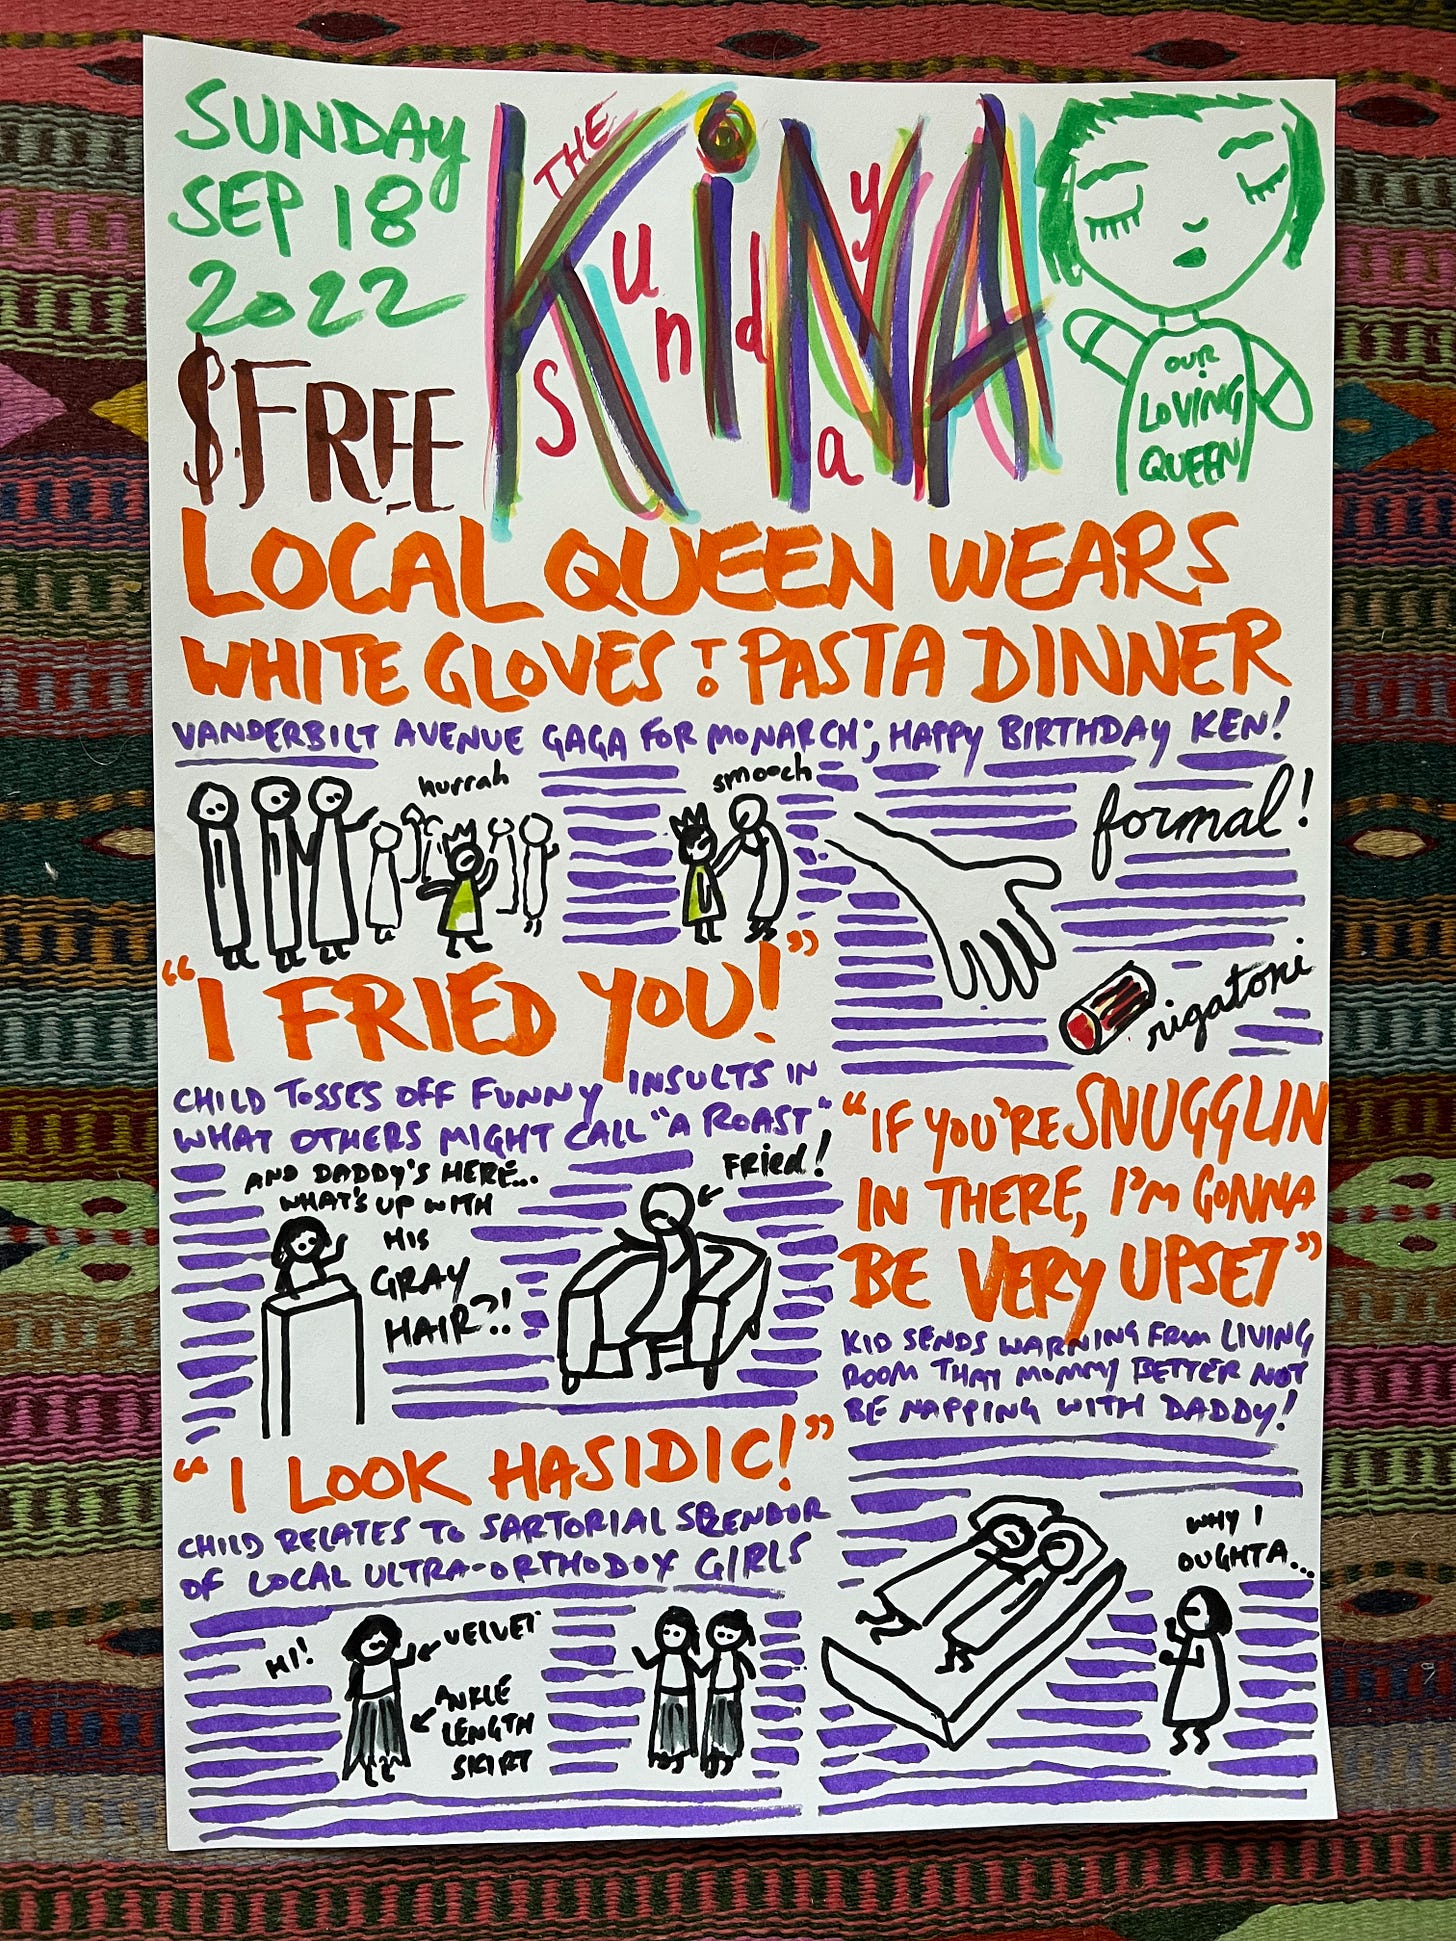 SUNDAY
SEP 18
2022
$FREE
THE
KiNA
Sunday
OUR
LOVING
QUEEN
LOCAL QUEEN WEARS
WHITE GLOVES TO PASTA DINNER
VANDERBILT AVENUE GAGA FOR MONARCH; HAPPY BIRTHDAY KEN!
hurrah
smooch
formal!
rigatoni
"I FRIED YOU!"
CHILD TOSSES OFF FUNNY INSULTS IN
WHAT OTHERS MIGHT CALL "A ROAST"
AND DADDY'S HERE...
WHAT'S UP WITH
HIS
GRAY
HAIR?!
FRied!
"IF YOU'RE SNUGGLIN
IN THERE, I'M GONNA
BE VERY UPSET"
KID SENDS WARNING FROM LIVING
ROOM THAT MOMMY BETTER NOT
BE NAPPING WITH DADDY!
WHY I
OUGHTA...
"I LOOK HASIDIC!"
CHILD RELATES TO SARTORIAL SPLENDOR
OF LOCAL ULTRA-ORTHODOX GIRLS
HI!
VELVET
ANKLE
LENGTH
SKIRT